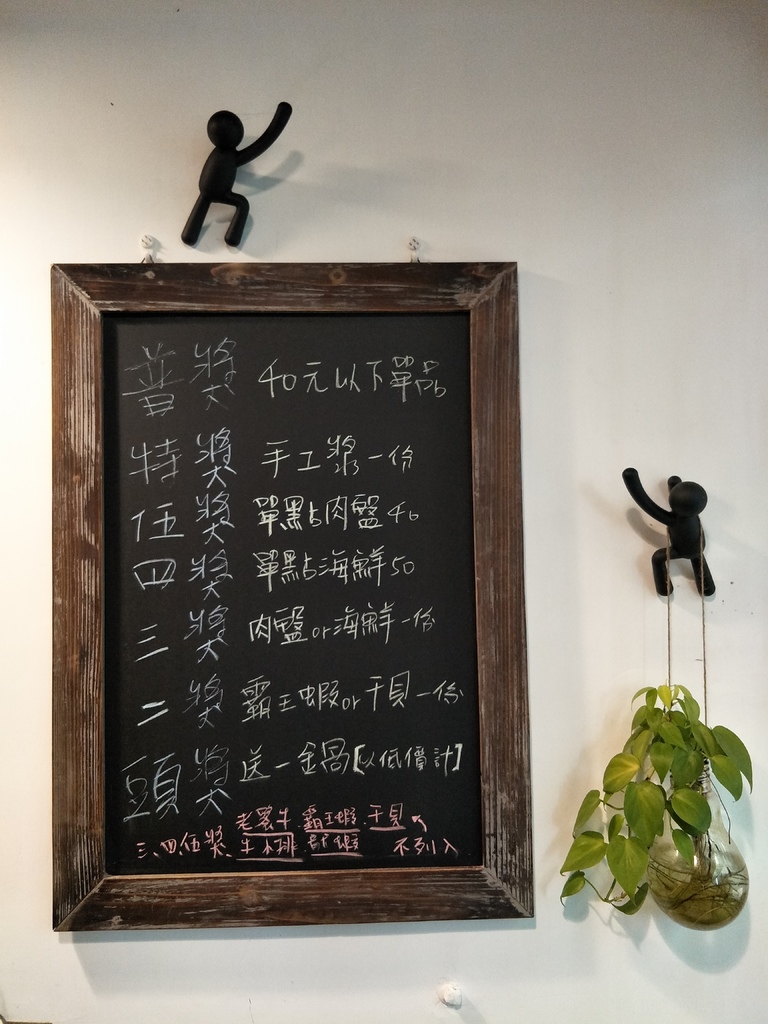 普獎 40元以下單品
特獎 手工漿一份
伍獎 單點肉盤40
四獎 單點海鮮50
三獎 肉盤or海鮮一份
二獎 霸王蝦or干貝一份
頭獎 送一鍋[以低價計]
老饕牛 霸王蝦 干貝
三、四伍獎 牛小排 龍蝦 不列入